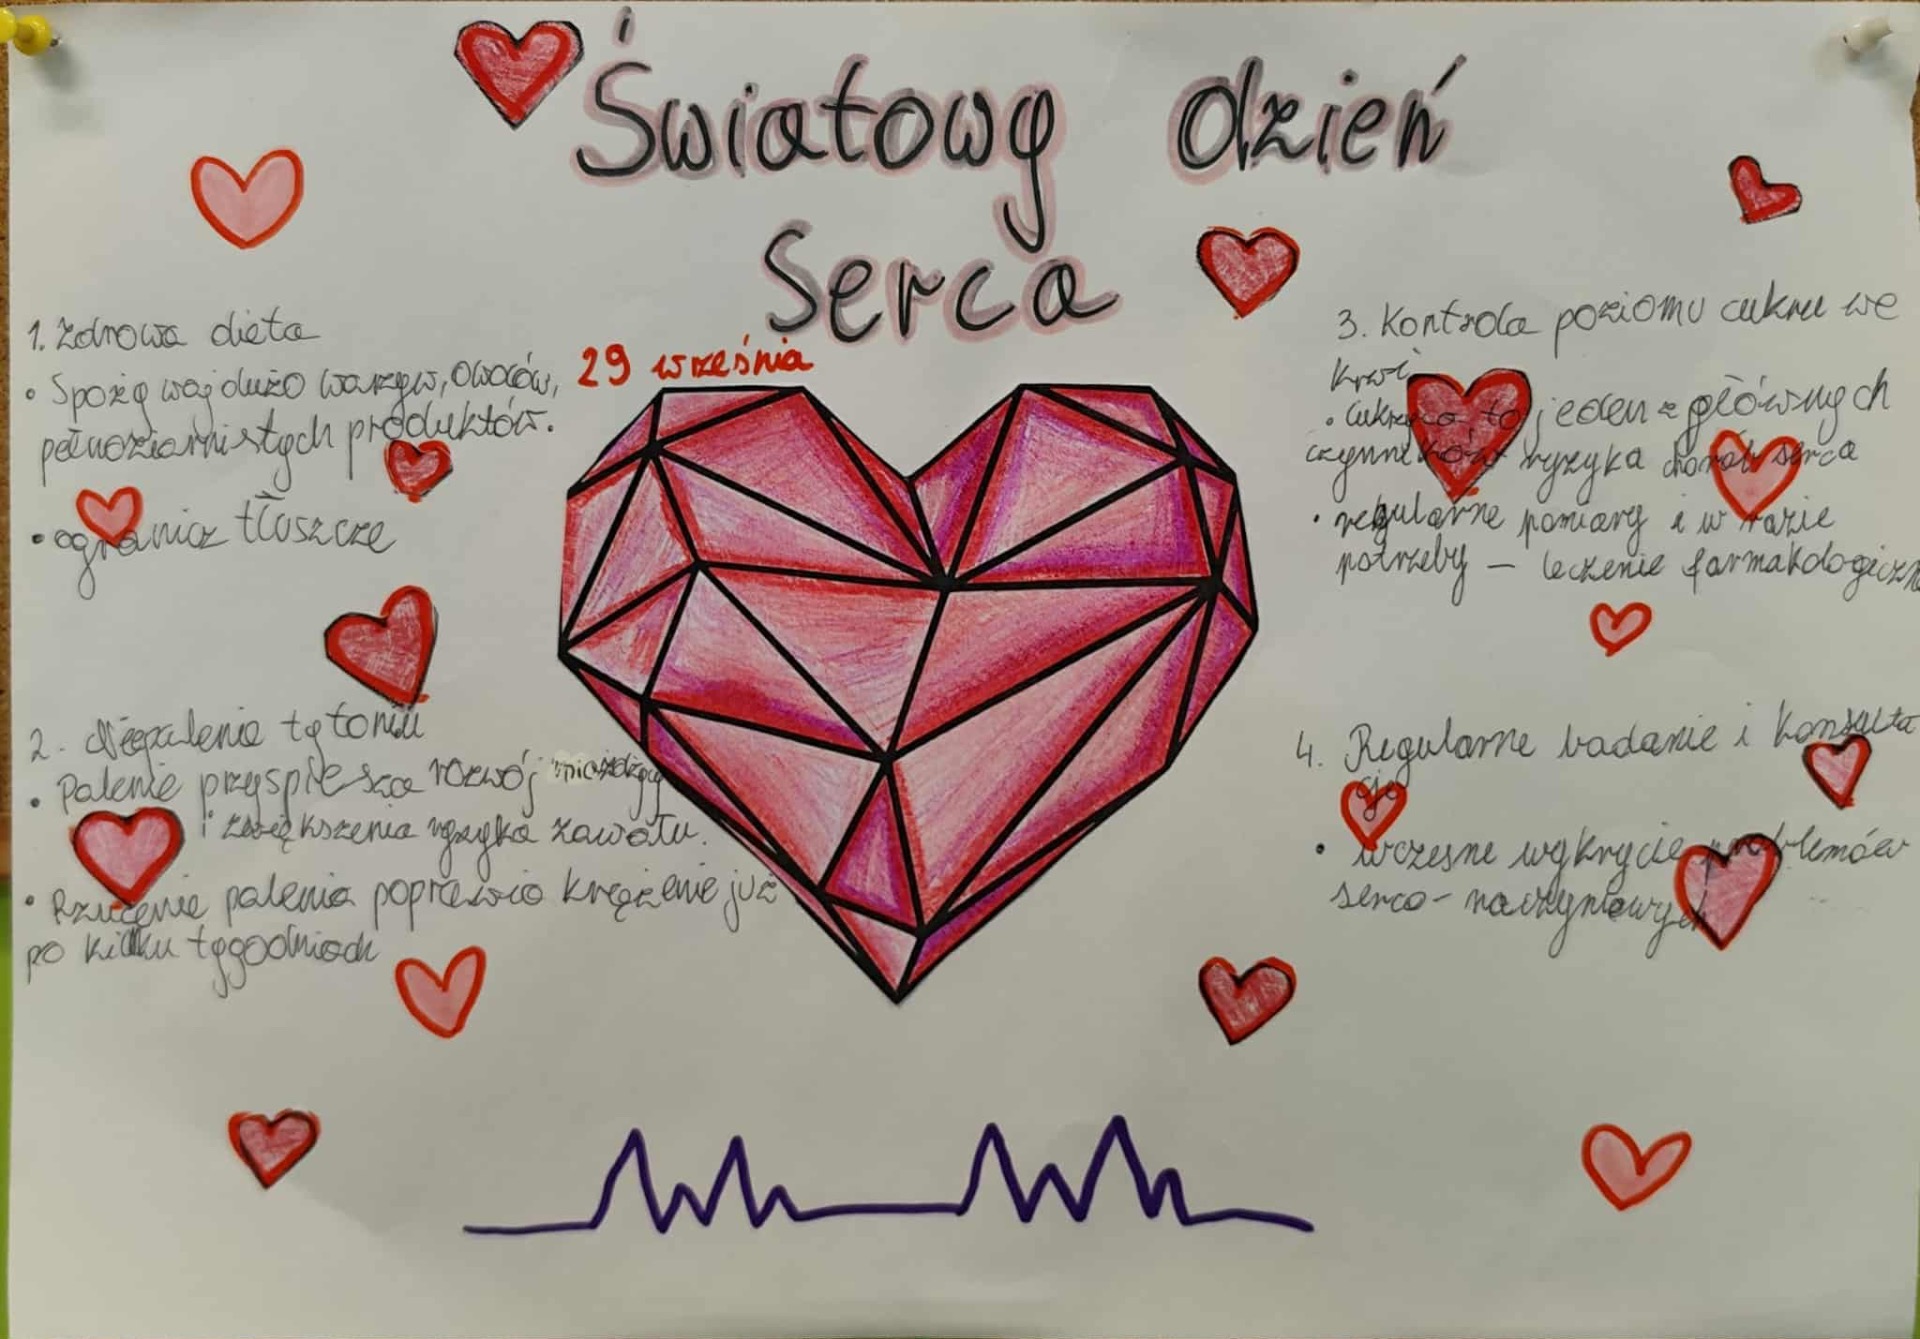 Światowy dzień
Serca
29 września
1. Zdrowa dieta
• Spożywaj dużo warzyw, owoców,
pełnoziarnistych produktów.
• ogranicz tłuszcze
2. Niepalenie tytoniu
• Palenie przyspiesza rozwój miażdżycy
i zwiększenia ryzyka zawału.
• Rzucenie palenia poprawia krążenie już
po kilku tygodniach
3. Kontrola poziomu cukru we
krwi
• Cukrzyca to jeden z głównych
czynników ryzyka chorób serca
• regularne pomiary i w razie
potrzeby – leczenie
4. Regularne badanie i konsulta
cje
• wczesne wykrycie problemów
serco-naczyniowych